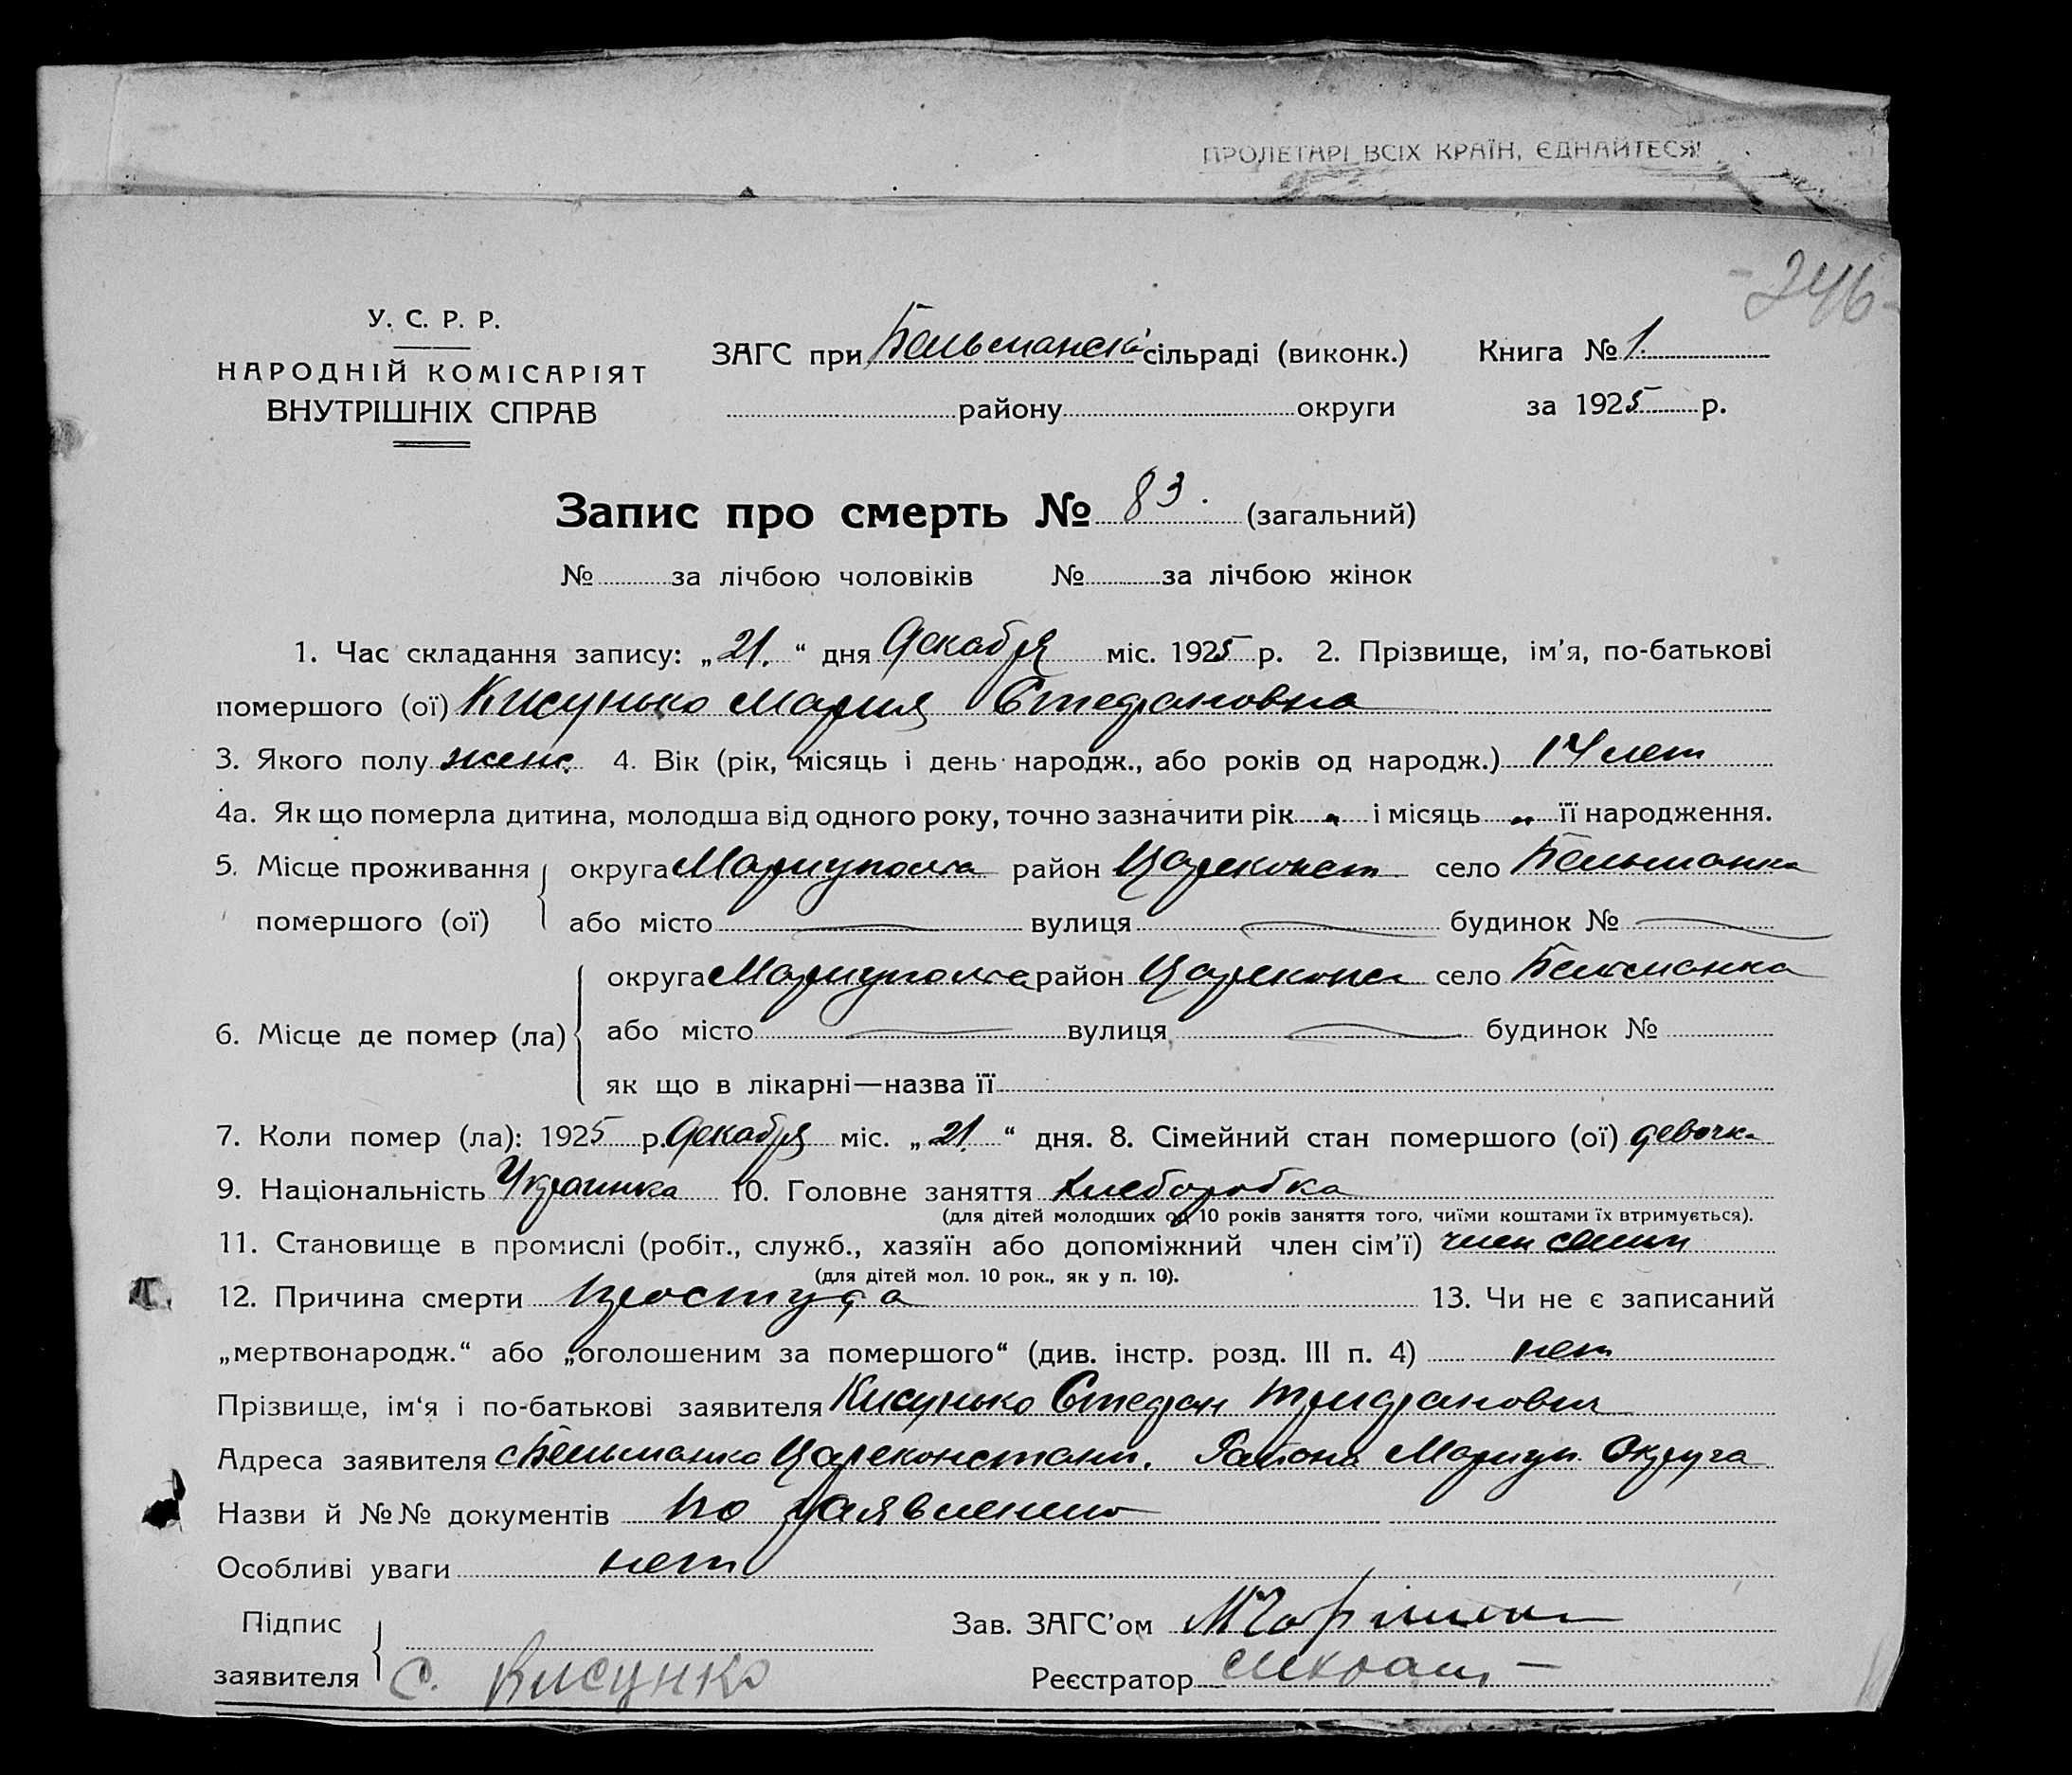 ПРОЛЕТАРІ ВСІХ КРАЇН, ЄДНАЙТЕСЯ!
246
У. С. Р. Р.
НАРОДНІЙ КОМІСАРІЯТ
ВНУТРІШНІХ СПРАВ
ЗАГС при Бельманскій сільраді (виконк.)
району округи
Книга № 1.
за 1925 р.
Запис про смерть № 83. (загальний)
№ за лічбою чоловіків № за лічбою жінок
1. Час складання запису: „21." дня Декабря міс. 1925 р. 2. Прізвище, ім'я, по-батькові
помершого (ої) Кисунько Мария Стефановна
3. Якого полу женс. 4. Вік (рік, місяць і день народж., або років од народж.) 14 лет
4а. Як що померла дитина, молодша від одного року, точно зазначити рік " і місяць " її народження.
5. Місце проживання помершого (ої)
округа Мариуполь район Цареконст село Бельманка
або місто — вулиця — будинок № —
6. Місце де помер (ла)
округа Мариуполь район Цареконс село Бельманка
або місто — вулиця — будинок №
як що в лікарні—назва її
7. Коли помер (ла): 1925 р. Декабря міс. „21." дня. 8. Сімейний стан помершого (ої) девочка
9. Національність Украинка 10. Головне заняття хлеборобка
(для дітей молодших од 10 років заняття того, чиїми коштами їх втримується).
11. Становище в промислі (робіт., служб., хазяїн або допоміжний член сім'ї) член семьи
(для дітей мол. 10 рок., як у п. 10).
12. Причина смерти простуда 13. Чи не є записаний
„мертвонародж." або „оголошеним за помершого" (див. інстр. розд. III п. 4) нет
Прізвище, ім'я і по-батькові заявителя Кисунько Стефан Трифанович
Адреса заявителя с Бельманка Цареконстант. Района Мариуп. Округа
Назви й №№ документів по заявлению
Особливі уваги нет
Підпис
заявителя С. Кисунко
Зав. ЗАГС'ом
Реєстратор